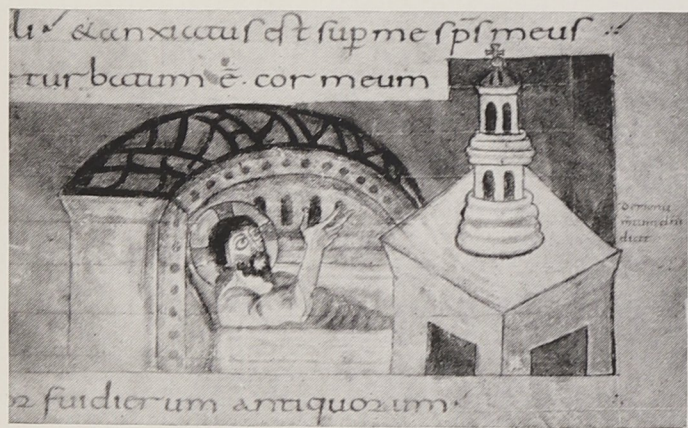 & anxiatus est sup me sps meus
turbatum ē · cor meum
fui dierum antiquorum